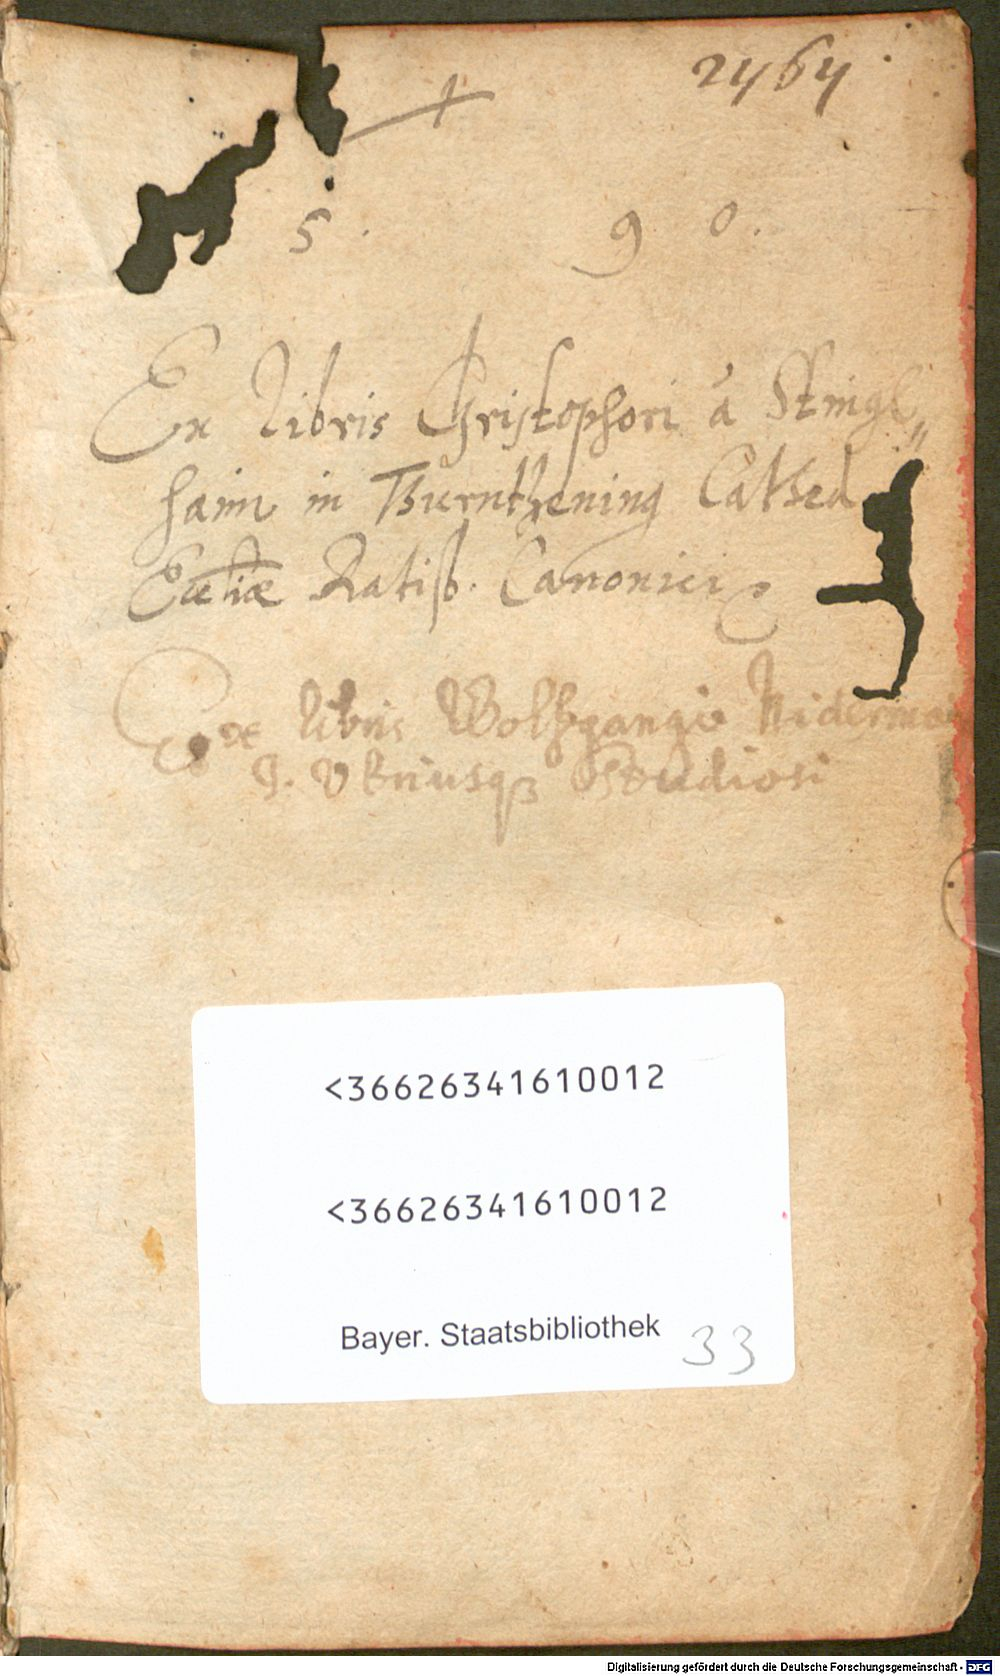 2464
5. 9 0.
Ex libris Christophori á Stingl„
haim in Thurnthening Cathed
Eccliæ Ratisb. Canonici
Ex libris Wolfgangi Nidermai
J. Vtriusq3 Studiosi
<36626341610012
<36626341610012
Bayer. Staatsbibliothek
33
Digitalisierung gefördert durch die Deutsche Forschungsgemeinschaft - DFG